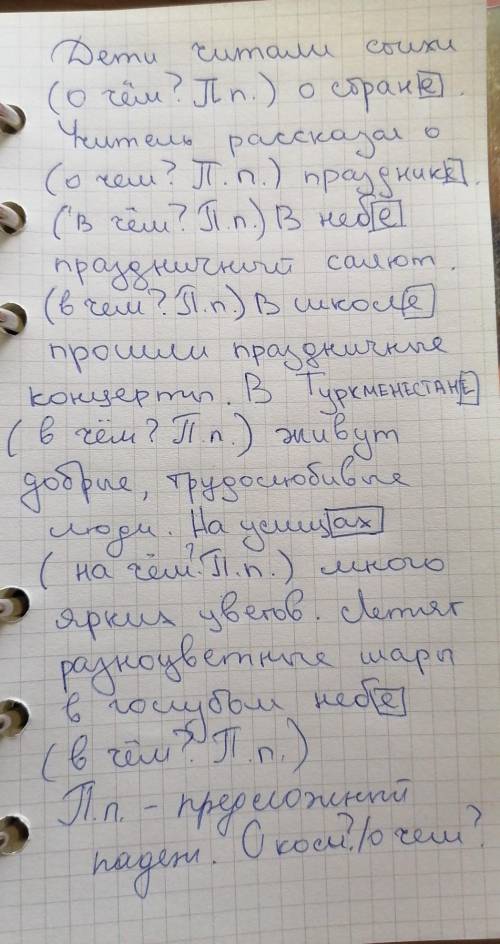 Дети читали стихи
(о чём? П.п.) о стране.
Учитель рассказал о
(о чем? П.п.) празднике.
(в чём? П.п.) В небе
праздничный салют.
(в чем? П.п.) В школе
прошли праздничные
концерты. В Туркменестане
(в чём? П.п.) живут
добрые, трудолюбивые
люди. На улицах
(на чём? П.п.) много
ярких цветов. Летят
разноцветные шары
в голубом небе
(в чём? П.п.)
П.п. - предложный
падеж. О ком?/о чем?